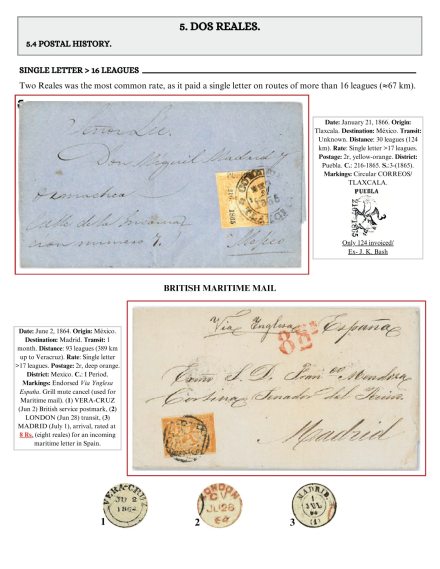 5. DOS REALES.
5.4 POSTAL HISTORY.
SINGLE LETTER > 16 LEAGUES
Two Reales was the most common rate, as it paid a single letter on routes of more than 16 leagues (≈67 km).
Señor Lic.
Don Miguel Madrid y
Calle de la
numero 7.
Mejico
Date: January 21, 1866. Origin:
Tlaxcala. Destination: México. Transit:
Unknown. Distance: 30 leagues (124
km). Rate: Single letter >17 leagues.
Postage: 2r, yellow-orange. District:
Puebla. C.: 216-1865. S.:3-(1865).
Markings: Circular CORREOS/
TLAXCALA.
PUEBLA
216 1865
Only 124 invoiced/
Ex- J. K. Bash
BRITISH MARITIME MAIL
Date: June 2, 1864. Origin: México.
Destination: Madrid. Transit: 1
month. Distance: 93 leagues (389 km
up to Veracruz). Rate: Single letter
>17 leagues. Postage: 2r, deep orange.
District: Mexico. C.: I Period.
Markings: Endorsed Via Ynglese
España. Grill mute cancel (used for
Maritime mail). (1) VERA-CRUZ
(Jun 2) British service postmark, (2)
LONDON (Jun 28) transit, (3)
MADRID (July 1), arrival, rated at
8 Rs. (eight reales) for an incoming
maritime letter in Spain.
Via Inglesa España
8Rs
Exmo S. D. Fran.co Mendoza
Cortina Senador del Reino
Madrid
VERA-CRUZ
JU 2
1864
LONDON
CV
JU 28
64
MADRID
1
JUL
64
(1)
1
2
3